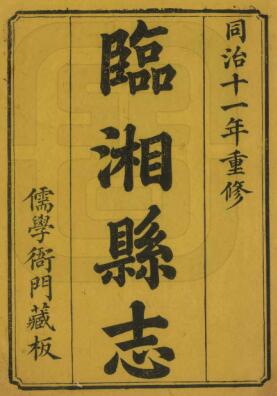 同治十一年重修
臨湘縣志
儒學衙門藏板